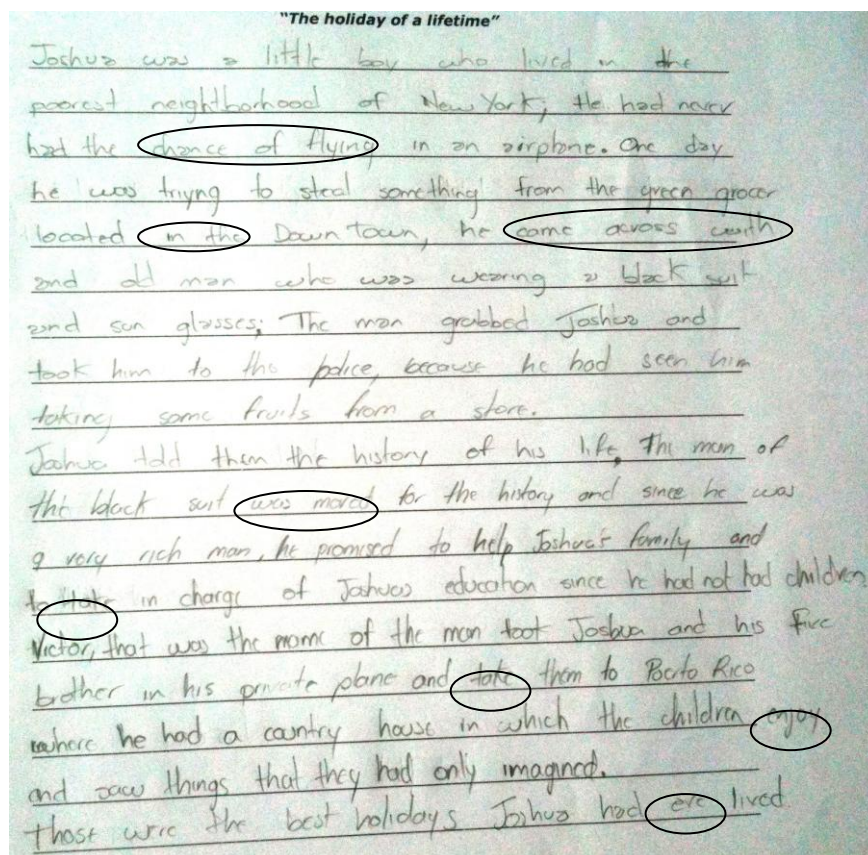 "The holiday of a lifetime"
Joshua was a little boy who lived in the
poorest neightborhood of New York; He had never
had the chance of flying in an airplane. One day
he was triyng to steal something from the green grocer
located in the Down town, he came across with
and old man who was wearing a black suit
and sun glasses; The man grabbed Joshua and
took him to the police, because he had seen him
taking some fruits from a store.
Joshua told them the history of his life, The man of
the black suit was moved for the history and since he was
a very rich man, he promised to help Joshua's family and
to take in charge of Joshuas education since he had not had children
Victor, that was the name of the man toot Joshua and his five
brother in his private plane and take them to Porto Rico
where he had a country house in which the children enjoy
and saw things that they had only imagined.
Those were the best holidays Joshua had lived